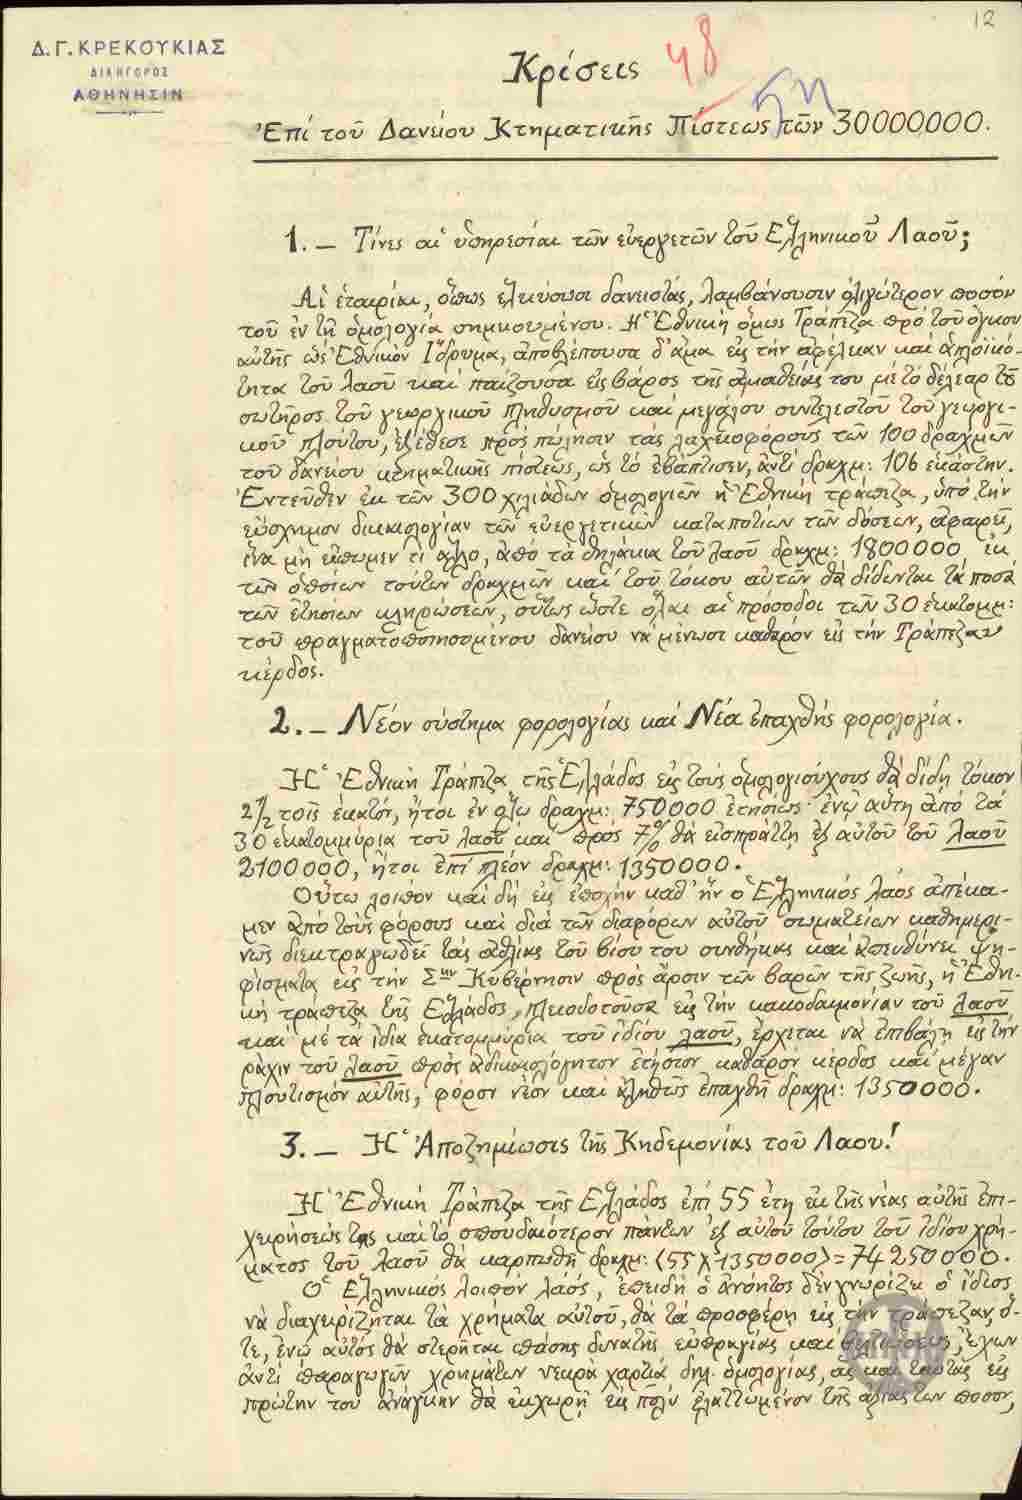 12
Δ. Γ. ΚΡΕΚΟΥΚΙΑΣ
ΔΙΚΗΓΟΡΟΣ
ΑΘΗΝΗΣΙΝ
48
Κρίσεις
Ἐπί τοῦ Δανείου Κτηματικῆς Πίστεως τῶν 30000.000.
1. — Τίνες αἱ ὑπηρεσίαι τῶν εὐεργετῶν τοῦ Ἑλληνικοῦ Λαοῦ;
Αἱ ἑταιρίαι, ὅπως ἑλκύσωσι δανειστάς, λαμβάνουσιν ὀλιγώτερον ποσόν
τοῦ ἐν τῇ ὁμολογίᾳ σημειουμένου. Ἡ Ἐθνική ὅμως Τράπεζα πρό τοῦ ὄγκου
αὐτῆς ὡς Ἐθνικόν Ἵδρυμα, ἀποβλέπουσα δ' ἅμα εἰς τήν ἀφέλειαν καί ἁπλοϊκό-
τητα τοῦ λαοῦ καί παίζουσα εἰς βάρος τῆς ἀμαθείας του μέ τό δέλεαρ τοῦ
σωτῆρος τοῦ γεωργικοῦ πληθυσμοῦ καί μεγάλου συντελεστοῦ τοῦ γεωργι-
κοῦ πλούτου, ἐξέθεσε πρός πώλησιν τάς λαχειοφόρους τῶν 100 δραχμῶν
τοῦ δανείου κτηματικῆς πίστεως, ὡς τό ἐβάπτισεν, ἀντί δραχμ: 106 ἑκάστην.
Ἐντεῦθεν ἐκ τῶν 300 χιλιάδων ὁμολογιῶν ἡ Ἐθνική τράπεζα, ὑπό τήν
εὐσχημον δικαιολογίαν τῶν εὐεργετικῶν καταποτίων τῶν δόσεων, ἀφαιρεῖ,
ἵνα μή εἴπωμεν τί ἄλλο, ἀπό τά θηλάκια τοῦ λαοῦ δραχμ: 1800000, ἐκ
τῶν ὁποίων τούτων δραχμῶν καί τοῦ τόκου αὐτῶν θά δίδωνται τά ποσά
τῶν ἐτησίων κληρώσεων, οὕτως ὥστε ὅλαι αἱ πρόσοδοι τῶν 30 ἑκατομμ:
τοῦ πραγματοποιησομένου δανείου νά μένωσι καθαρόν εἰς τήν Τράπεζαν
κέρδος.
2. — Νέον σύστημα φορολογίας καί Νέα ἐπαχθής φορολογία.
Ἡ Ἐθνική Τράπεζα τῆς Ἑλλάδος εἰς τούς ὁμολογιούχους θά δίδῃ τόκον
2½ τοῖς ἑκατόν, ἤτοι ἐν ὅλῳ δραχμ: 750000 ἐτησίως· ἐνῷ αὕτη ἀπό τά
30 ἑκατομμύρια τοῦ λαοῦ καί πρός 7% θά εἰσπράττῃ ἐξ αὐτοῦ τοῦ λαοῦ
2100000, ἤτοι ἐπί πλέον δραχμ: 1350000.
Οὕτω λοιπόν καί δή εἰς ἐποχήν καθ' ἥν ὁ Ἑλληνικός λαός ἀπέκα-
μεν ἀπό τούς φόρους καί διά τῶν διαφόρων αὐτοῦ σωματείων καθημερι-
νῶς διεκτραγωδεῖ τάς ἀθλίας τοῦ βίου του συνθήκας καί ἀπευθύνει ψη-
φίσματα εἰς τήν Σην Κυβέρνησιν πρός ἄρσιν τῶν βαρῶν τῆς ζωῆς, ἡ Ἐθνι-
κή τράπεζα τῆς Ἑλλάδος, πλειοδοτοῦσα εἰς τήν κακοδαιμονίαν τοῦ λαοῦ
καί μέ τά ἴδια ἑκατομμύρια τοῦ ἰδίου λαοῦ, ἔρχεται νά ἐπιβάλῃ εἰς τήν
ράχιν τοῦ λαοῦ πρός ἀδικαιολόγητον ἐτήσιον καθαρόν κέρδος καί μέγαν
πλουτισμόν αὐτῆς, φόρον νέον καί ἀληθῶς ἐπαχθῆ δραχμ: 1350000.
3. — Ἡ Ἀποζημίωσις τῆς Κηδεμονίας τοῦ Λαοῦ!
Ἡ Ἐθνική Τράπεζα τῆς Ἑλλάδος ἐπί 55 ἔτη ἐκ τῆς νέας αὐτῆς ἐπι-
χειρήσεώς της καί τό σπουδαιότερον πάντων ἐξ αὐτοῦ τούτου τοῦ ἰδίου χρή-
ματος τοῦ λαοῦ θά καρπωθῇ δραχμ: (55 χ 1350000) = 74250000.
Ὁ Ἑλληνικός λοιπόν λαός, ἐπειδή ὁ ἀνόητος δέν γνωρίζει ὁ ἴδιος
νά διαχειρίζηται τά χρήματα αὐτοῦ, θά τά προσφέρῃ εἰς τήν τράπεζαν, ὅ-
τε, ἐνῷ αὐτός θά στερῆται πάσης δυνατῆς εὐπραγίας καί βελτιώσεως, ἔχων
ἀντί παραγωγῶν χρημάτων νεκρά χαρτιά δηλ. ὁμολογίας, ἅς καί ταύτας εἰς
πρώτην του ἀνάγκην θά ἐκχωρῇ εἰς πολύ ἐλαττωμένον τῆς ἀξίας των ποσόν,